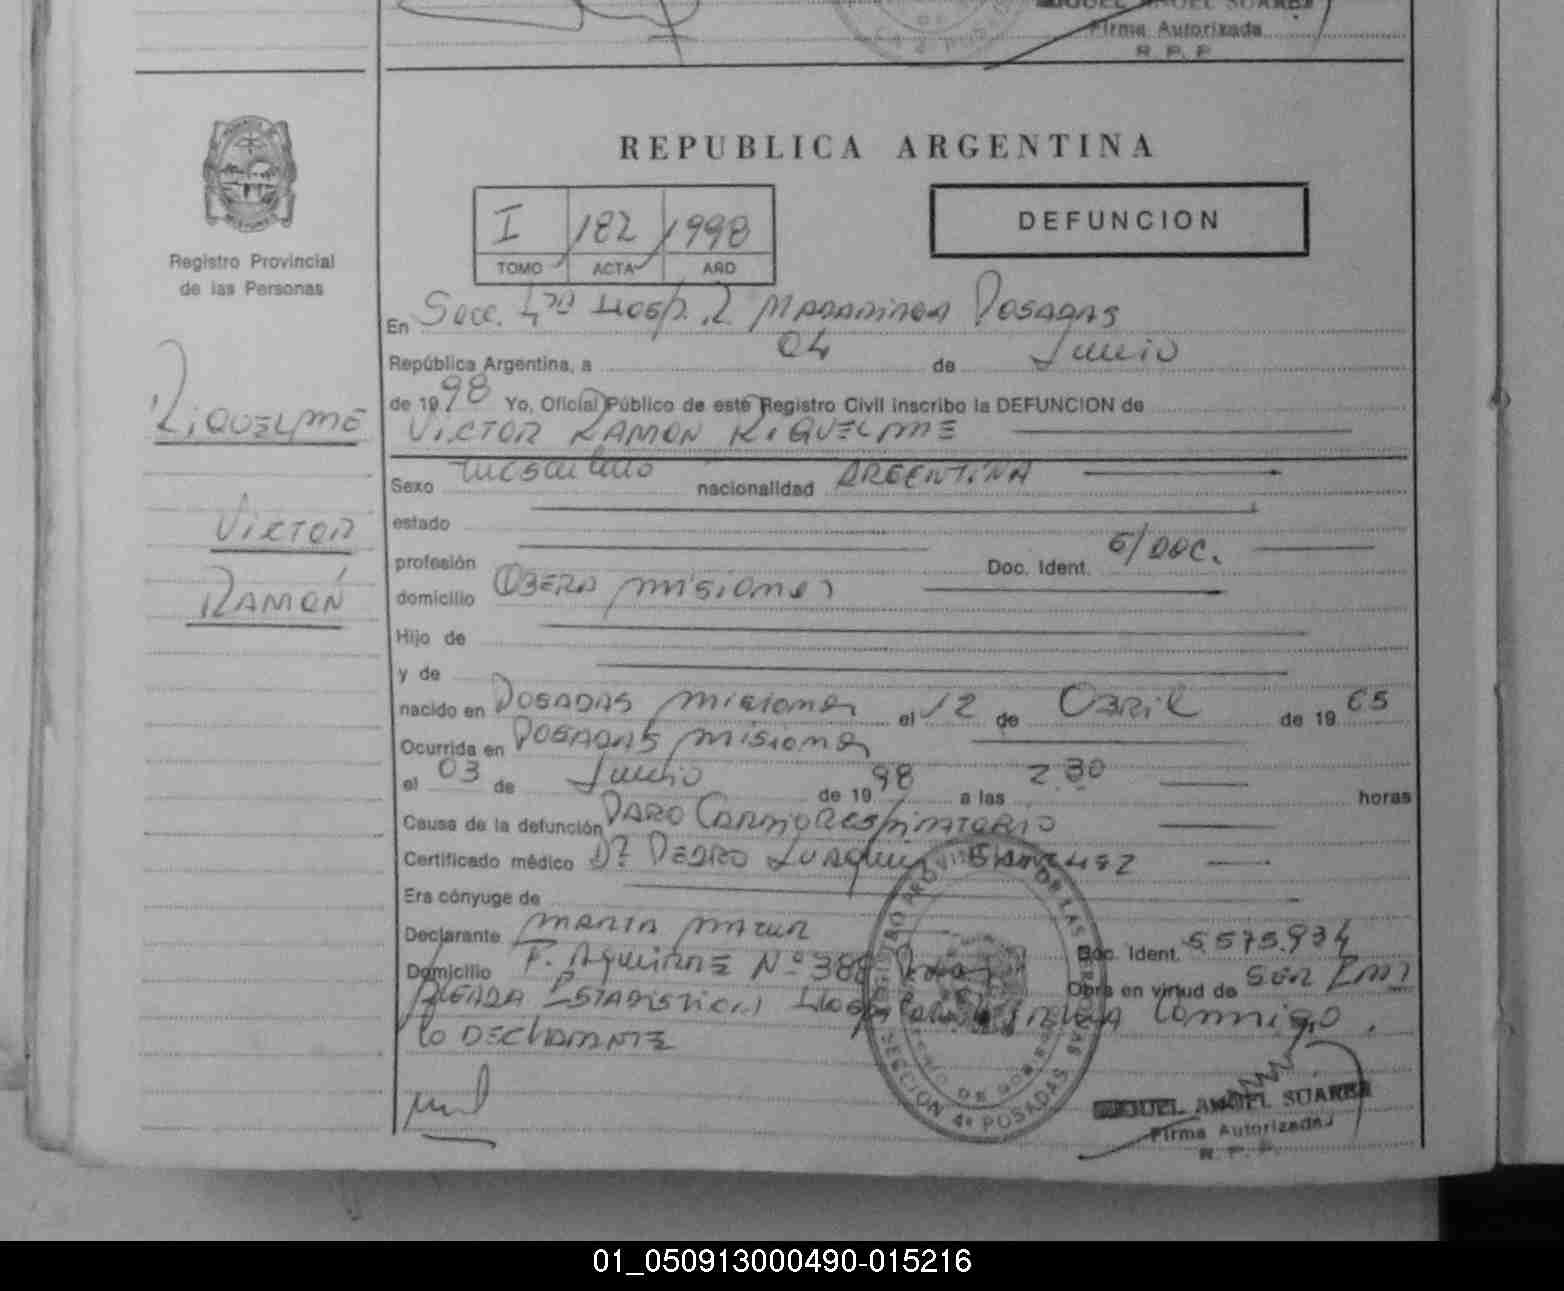 MIGUEL ANGEL SUAREZ
Firma Autorizada
R. P. P.
REPUBLICA ARGENTINA
I 182 1998
TOMO ACTA AÑO
DEFUNCION
Registro Provincial
de las Personas
RIQUELME
VICTOR
RAMÓN
En Secc. 4ta Hosp. R. MADARIAGA POSADAS
República Argentina, a 04 de Junio
de 1998 Yo, Oficial Público de este Registro Civil inscribo la DEFUNCION de
VICTOR RAMON RIQUELME
Sexo masculino nacionalidad ARGENTINA
estado
profesión Doc. Ident. S/DOC.
domicilio OBERA misiones
Hijo de
y de
nacido en POSADAS misiones el 12 de ABRIL de 1965
Ocurrida en POSADAS misiones
el 03 de Junio de 1998 a las 2.30 horas
Causa de la defunción PARO CARDIORESPIRATORIO
Certificado médico Dr. PEDRO
Era cónyuge de
Declarante MARTA Doc. Ident. 5575.934
Domicilio F. AGUIRRE Nº 388 Obra en virtud de SER EM
PLEADA ESTADISTICA FIRMA Conmigo.
lo DECLARANTE
SECCION 4ª POSADAS
MIGUEL ANGEL SUAREZ
Firma Autorizada
R. P. P.
01_050913000490-015216